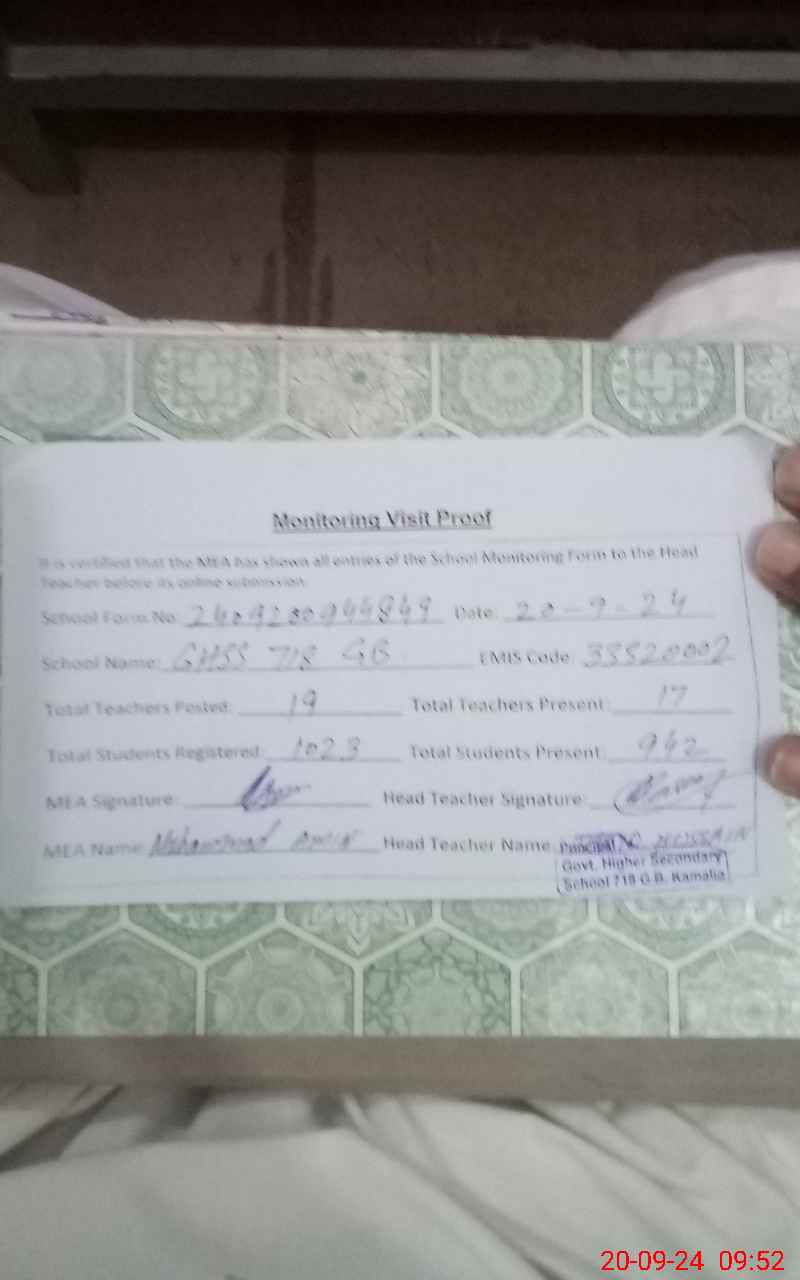 Monitoring Visit Proof
It is certified that the MEA has shown all entries of the School Monitoring Form to the Head
Teacher before its online submission
School Form No: 2409200944849 Date: 20-9-24
School Name: GHSS 718 GB EMIS Code: 33320002
Total Teachers Posted: 19 Total Teachers Present: 17
Total Students Registered: 1023 Total Students Present: 942
MEA Signature: Head Teacher Signature:
MEA Name: Muhammad Amin Head Teacher Name:
Principal
Govt. Higher Secondary
School 718 G.B. Kamalia
20-09-24 09:52